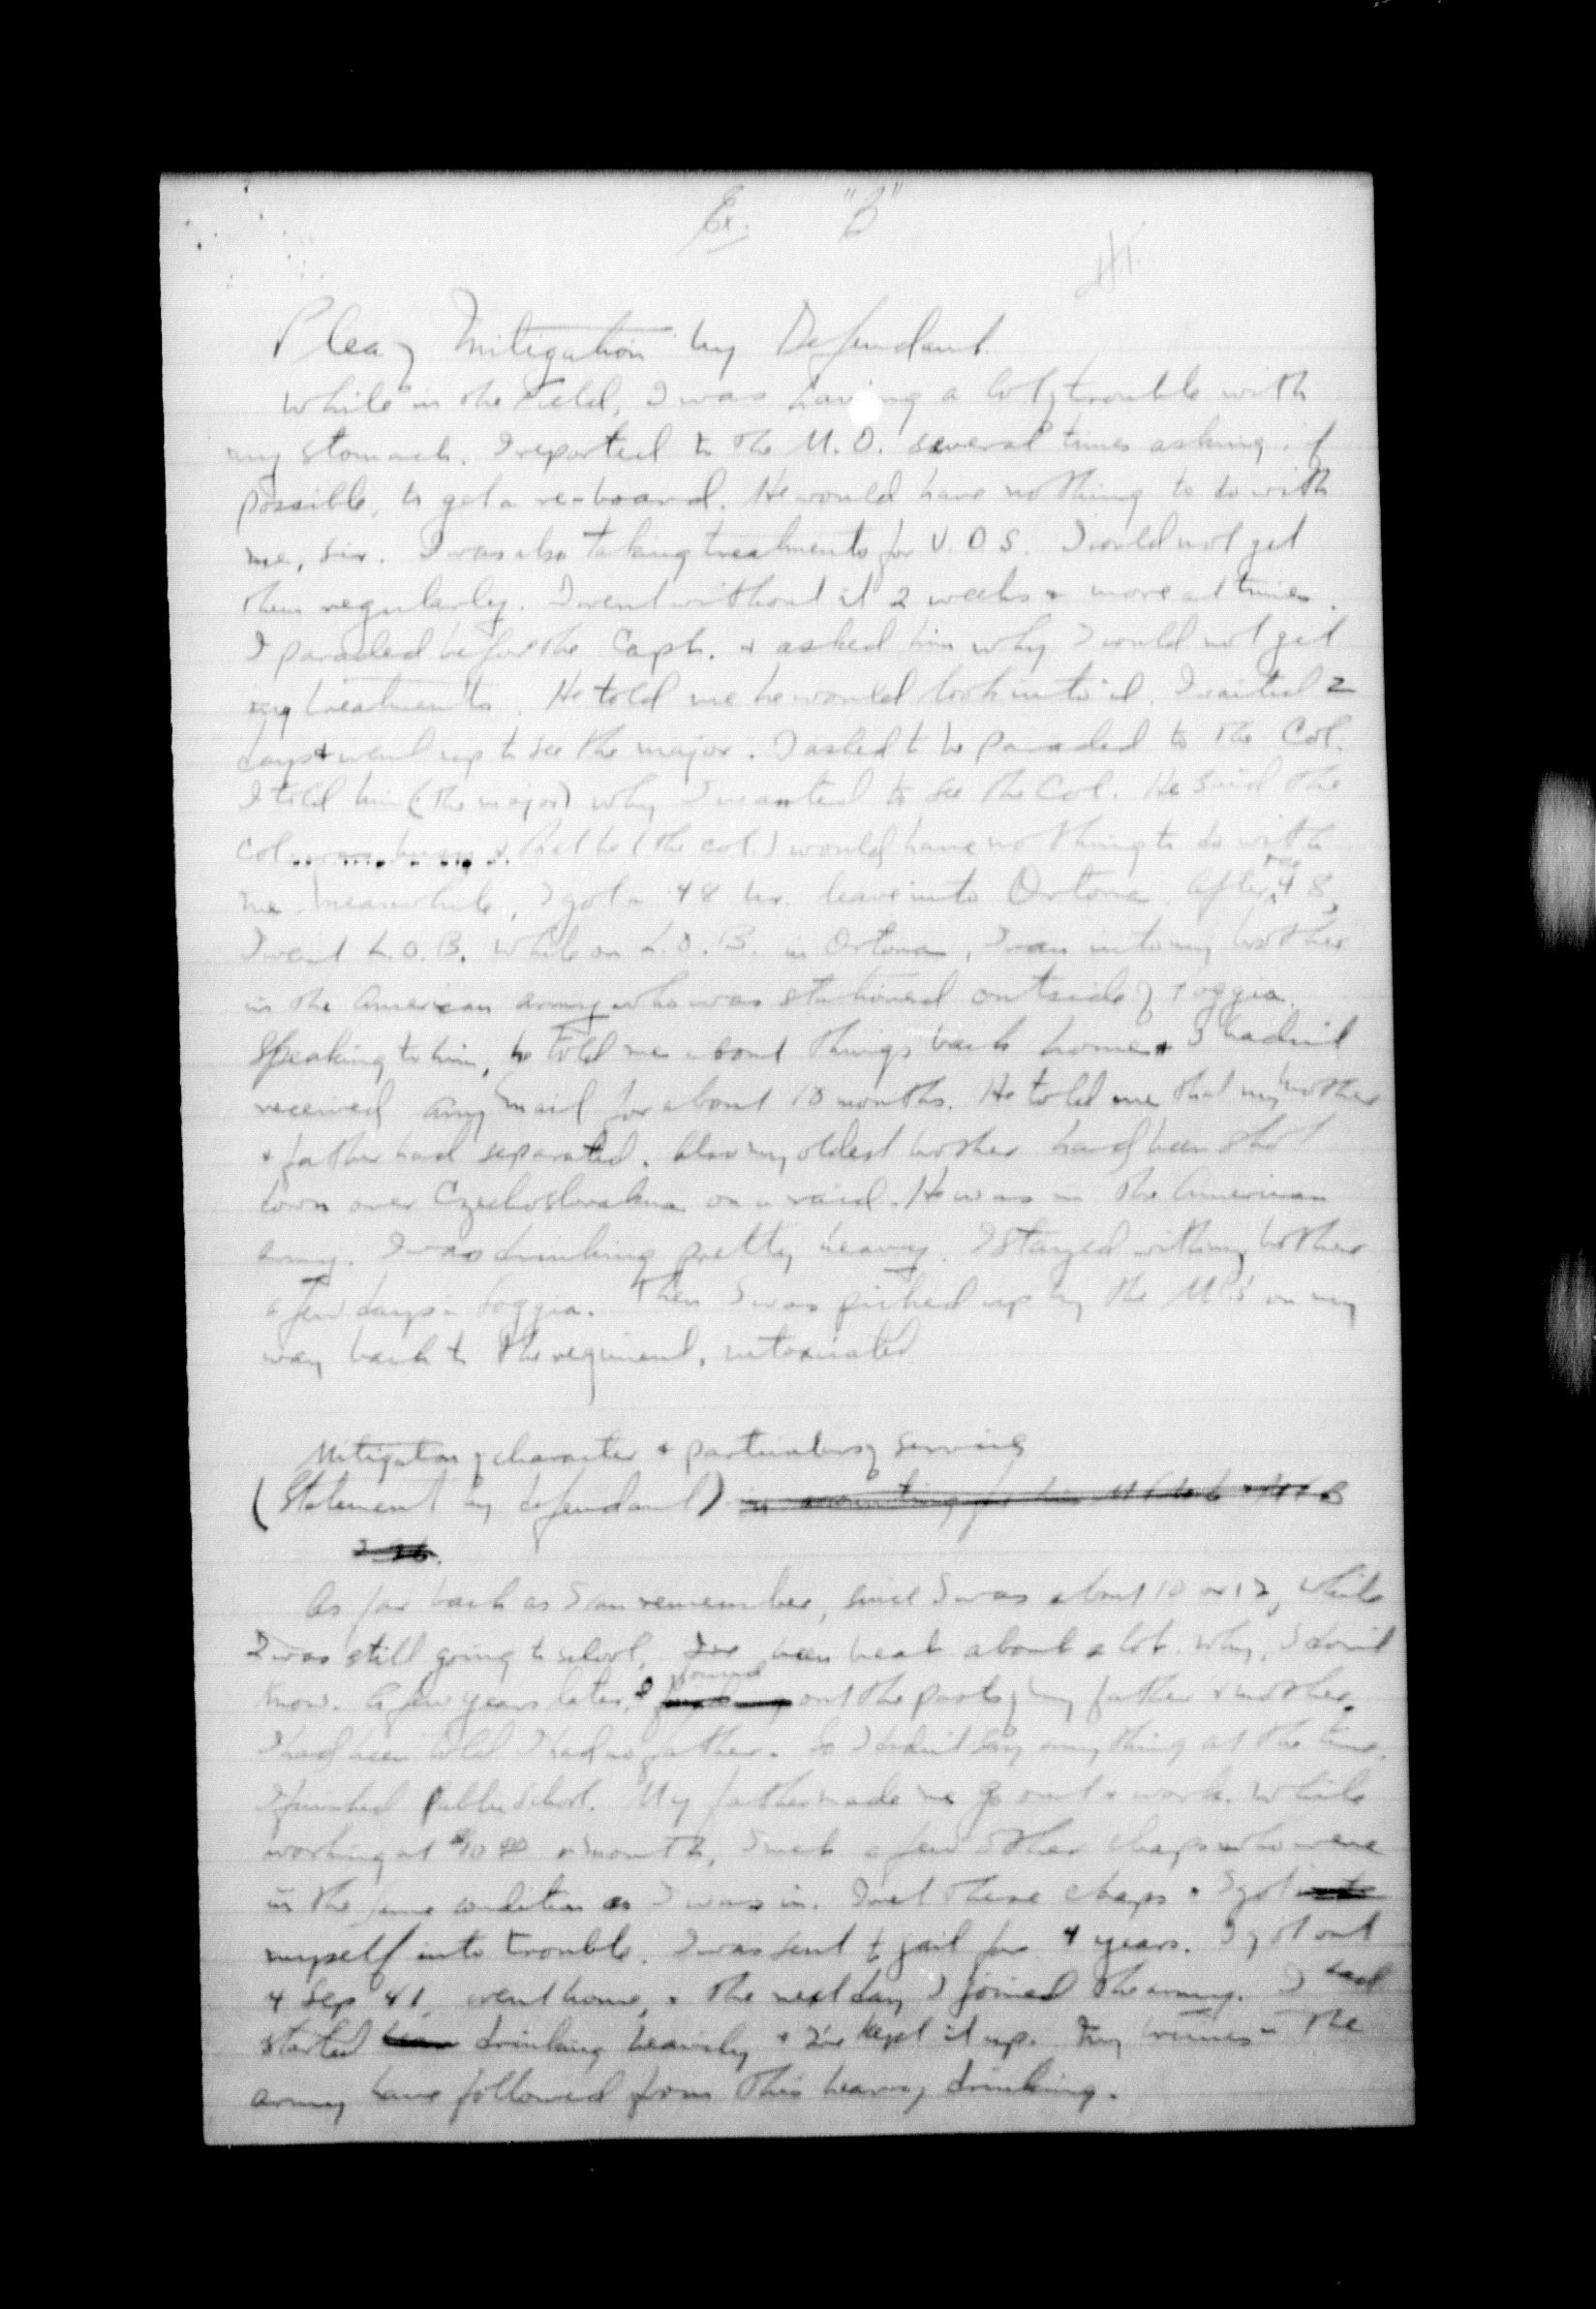 Ex. "B"
Plea of Mitigation by Defendant.
While in the Field, I was having a lot of trouble with
my stomach. I reported to the M.O. several times asking, if
possible, to get a re-board. He would have nothing to do with
me, sir. I was also taking treatments for V.D.S. I could not get
them regularly. I went without it 2 weeks & more at times.
I paraded before the Capt. & asked him why I could not get
my treatments. He told me he would look into it. I waited 2
days & went up to see the major. I asked to be paraded to the Col.
I told him (the major) why I wanted to see the Col. He said the
Col. was busy & that he (the col.) would have no thing to do with
me. Meanwhile, I got a 48 hr. leave into Ortona. After the 48,
I went L.O.B. While on L.O.B. in Ortona, I ran into my brother
in the American army who was stationed outside of Foggia.
Speaking to him, he told me about things back home & I hadn't
received any mail for about 10 months. He told me that my mother
& father had separated. Also my oldest brother had been shot
down over Czechoslovakia on a raid. He was in the American
army. I was drinking pretty heavy. I stayed with my brother
a few days in Foggia. Then I was picked up by the MPs on my
way back to the regiment, intoxicated
Mitigation of character & particulars of service
(Statement by defendant) in accounting for his
As far back as I can remember, since I was about 10 or 12, while
I was still going to school, I've been beat about a lot. Why, I don't
know. A few years later, I found out the parts of my father & mother.
I had been told I had no father. So I didn't say anything at the time.
I finished Public School. My father made me go out & work. While
working at $10.00 a month, I met a few other chaps who were
in the same condition as I was in. I met these chaps & I got
myself into trouble. I was sent to jail for 4 years. I got out
4 Sep 41, went home, & the next day I joined the army. I had
started drinking heavily & I've kept it up. My crimes in the
army have followed from this heavy drinking.